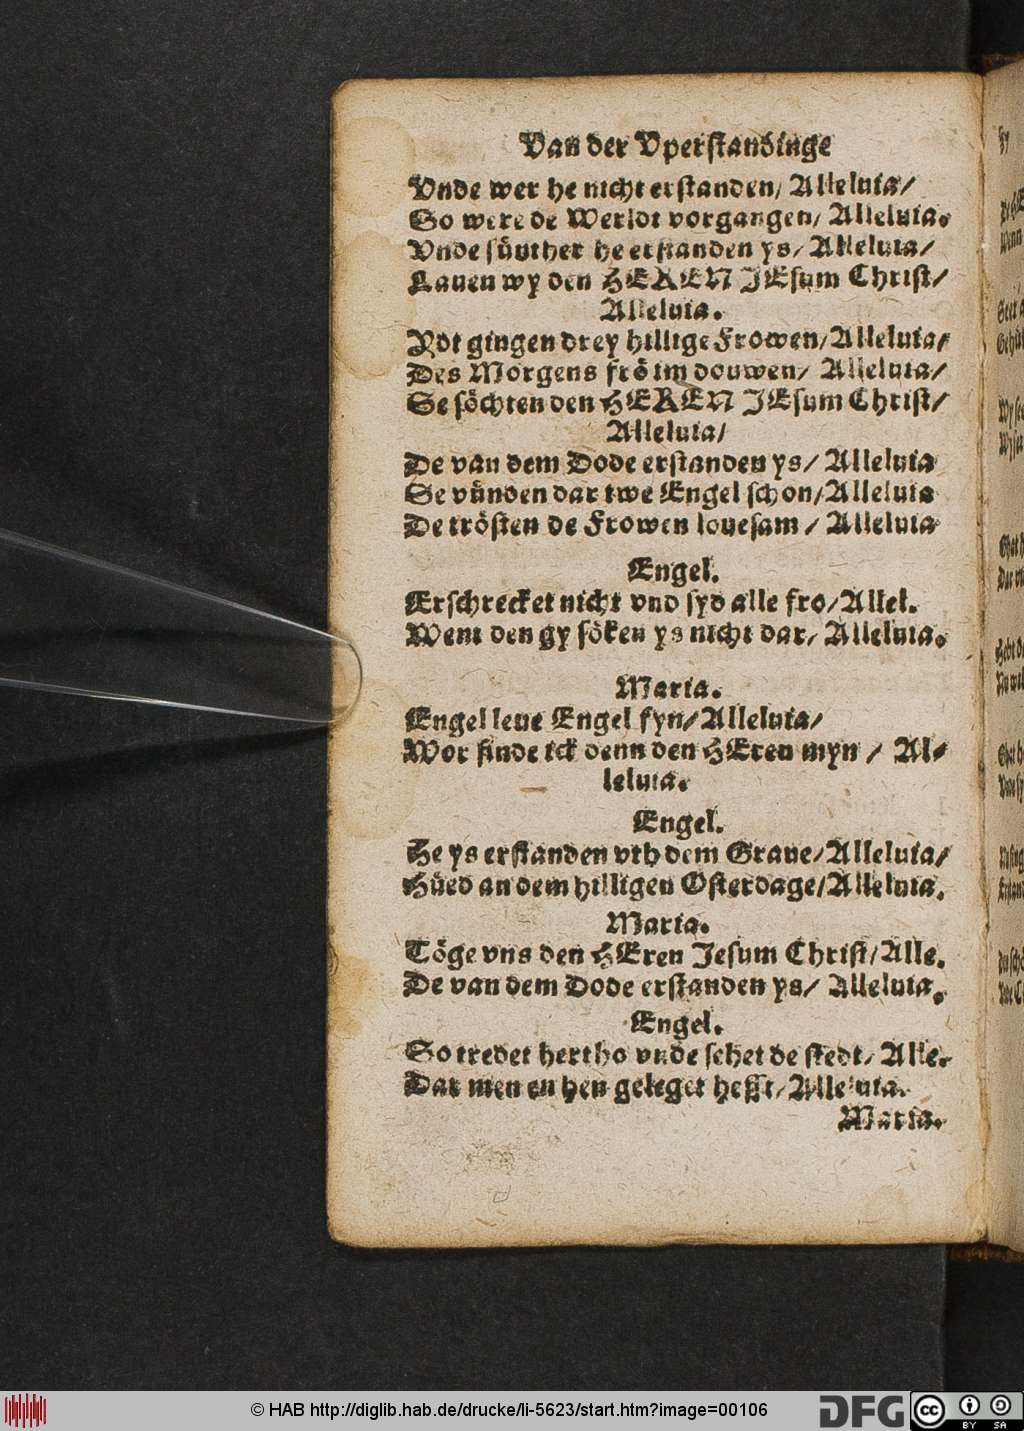 Van der Vperstandinge
Vnde wer he nicht erstanden/ Alleluia/
So were de Werldt vorgangen/ Alleluia.
Vnde sünther he erstanden ys/ Alleluia/
Lauen wy den HEREN JEsum Christ/
Alleluia.
Ydt gingen drey hillige Frowen/Alleluia/
Des Morgens frö im douwen/ Alleluia/
Se söchten den HEREN JEsum Christ/
Alleluia/
De van dem Dode erstanden ys/ Alleluia
Se vünden dar twe Engel schon/Alleluia
De trösten de Frowen louesam/ Alleluia
Engel.
Erschrecket nicht vnd syd alle fro/Allel.
Went den gy söken ys nicht dar/ Alleluia.
Maria.
Engel leue Engel fyn/Alleluia/
Wor finde ick denn den HEren myn/ Al⸗
leluia.
Engel.
He ys erstanden vth dem Graue/Alleluia/
Hüed an dem hilligen Osterdage/Alleluia.
Maria.
Töge vns den HEren Jesum Christ/Alle.
De van dem Dode erstanden ys/ Alleluia.
Engel.
So tredet hertho vnde sehet de stedt/ Alle.
Dar men en hen geleget hefft/Alleluia.
Maria.
© HAB http://diglib.hab.de/drucke/li-5623/start.htm?image=00106
DFG
cc BY SA